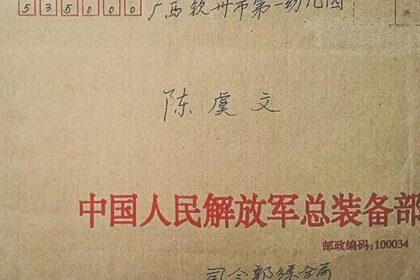 535000
广西钦州市第一幼儿园
陈虞文
中国人民解放军总装备部
邮政编码:100034
司令部综合局